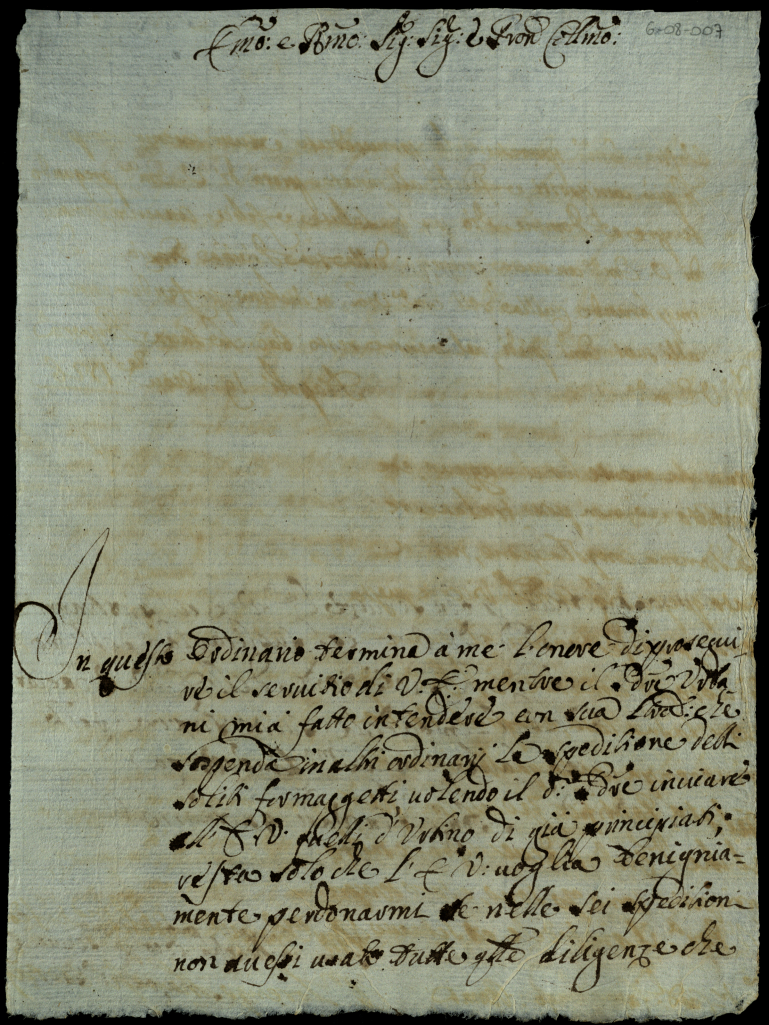 Emo: e Rmo: Sig: Sig: e Pron Collmo:
60-08-007
In questo Ordinario termina à me l'onore di prosegui
re il servitio di V. E. mentre il Pdre Urba
ni mi à fatto intendere con sua che
sospenda in altri ordinarj le speditione delli
soliti formaggetti volendo il d: Pdre inviare
all'E V. quelli d'Urbino di già principiati;
resta solo che l'E V: voglia benignia=
mente perdonarmi se nelle sei speditioni
non avessi usato tutte qlle diligenze che